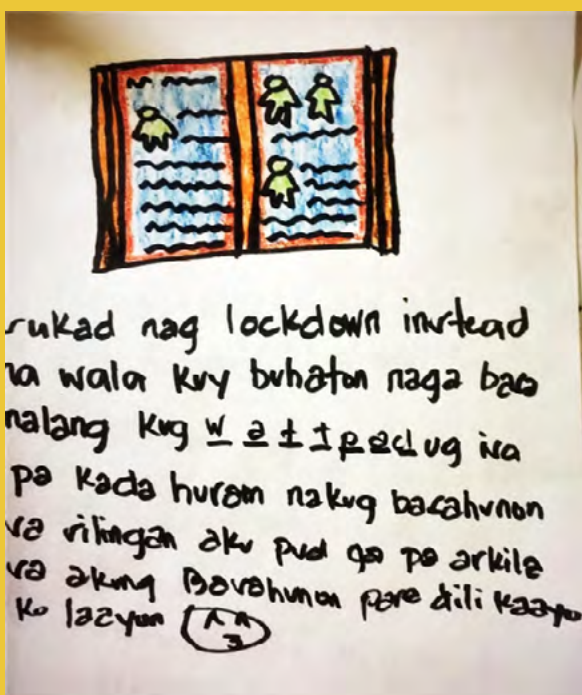 rukad nag lockdown instead
na wala kuy buhaton naga basa
nalang kug wattpad ug isa
pa kada huram nakug basahunon
sa silingan aku pud ga pa arkila
sa akung Basahunon para dili kaayu
ko laayun